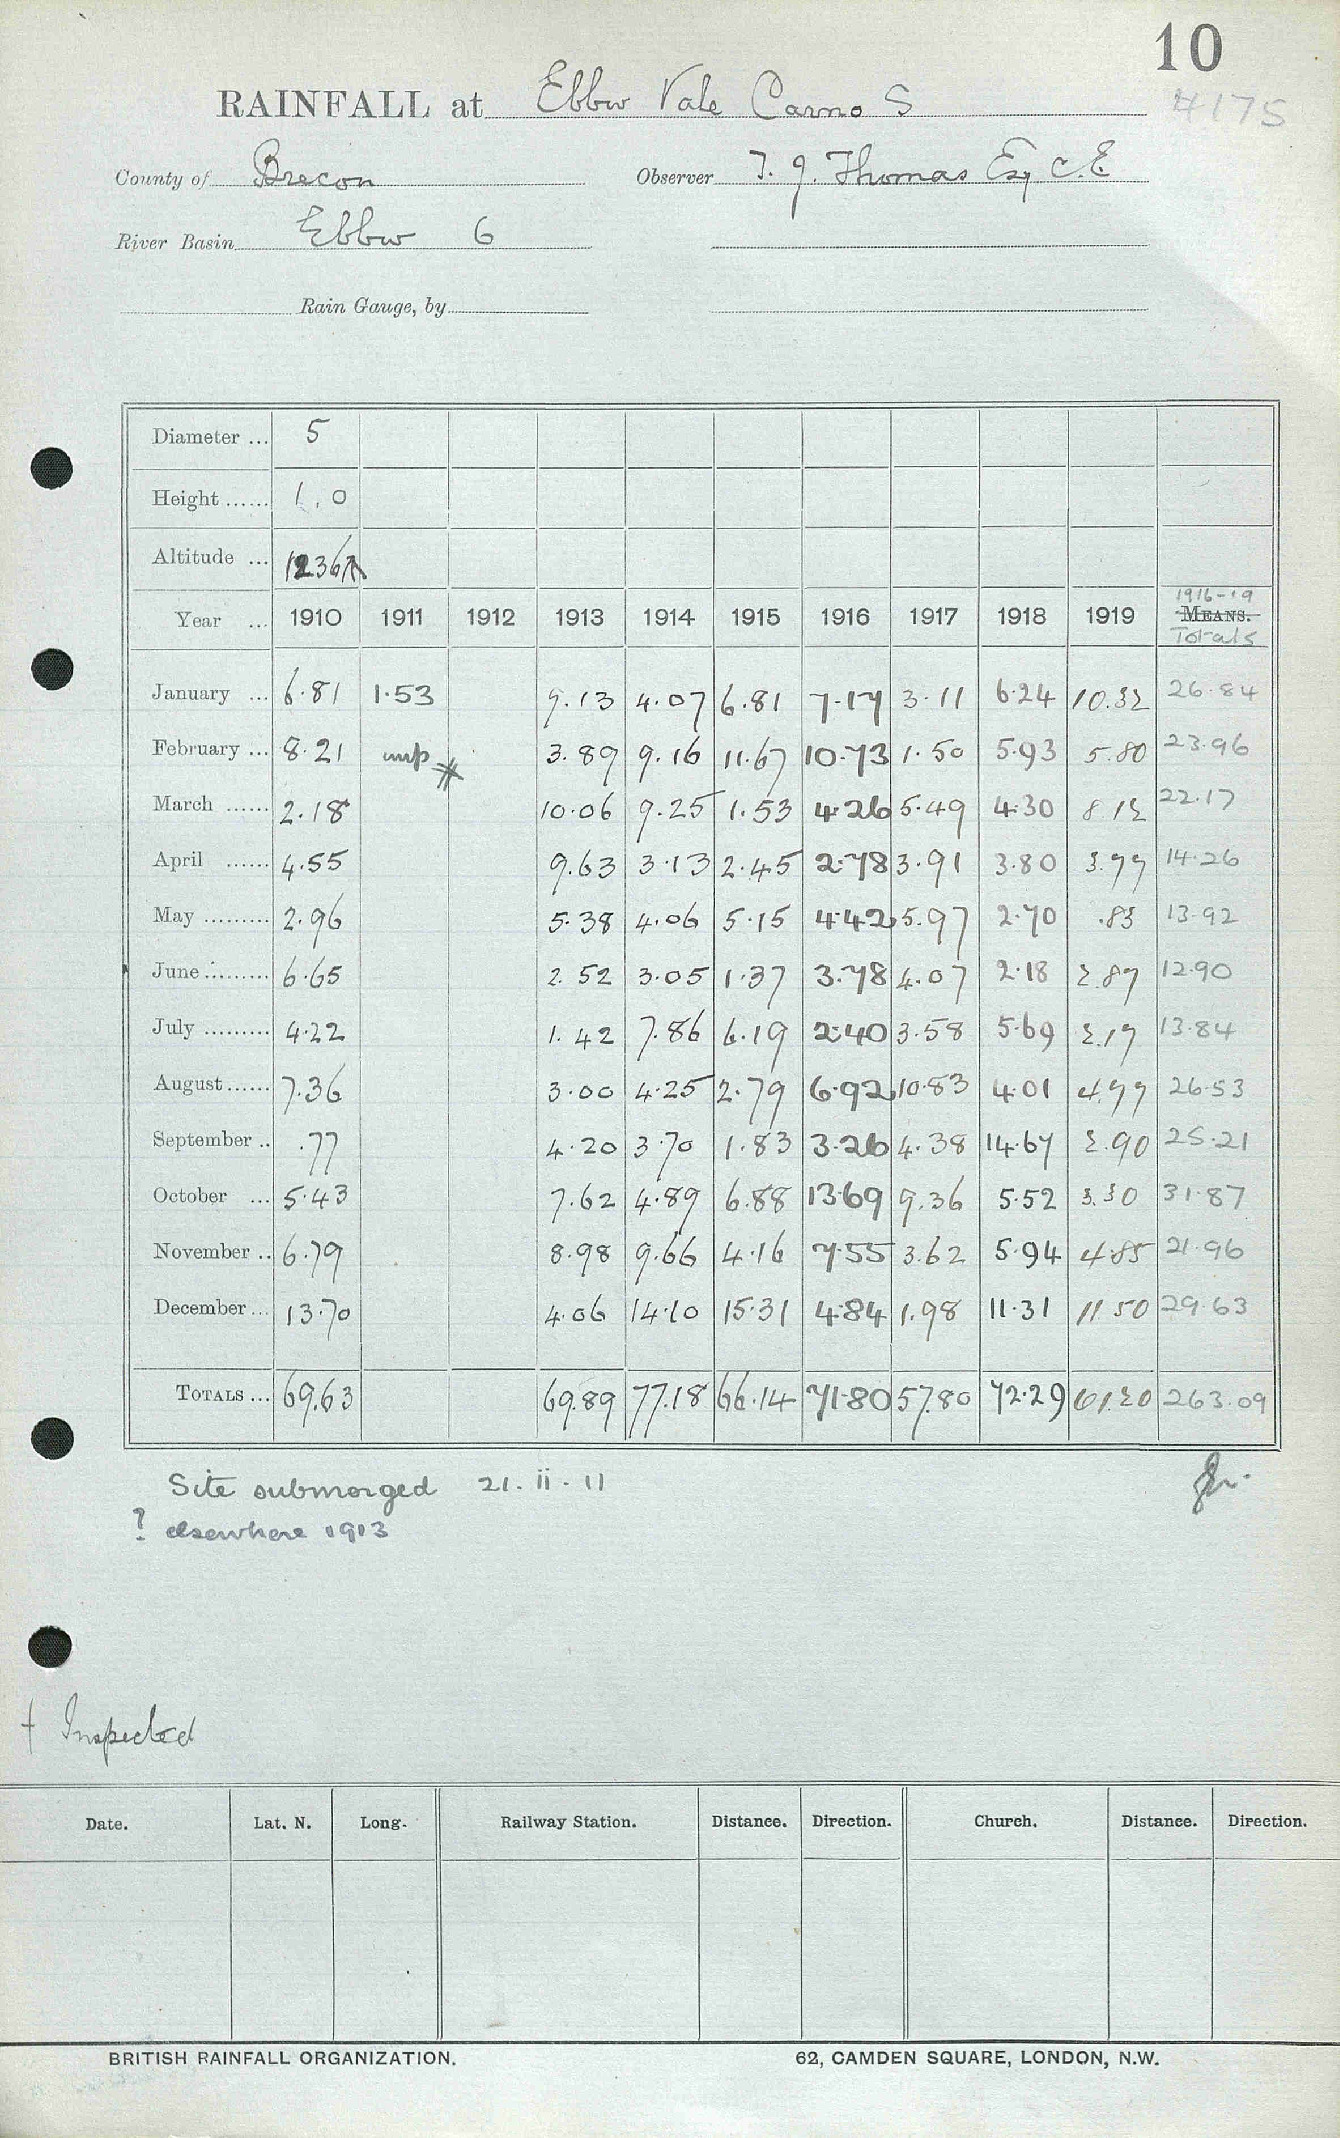 10
RAINFALL at Ebbw Vale Carno S 4175
County of Brecon Observer T. J. Thomas Esq C.E.
River Basin Ebbw 6
Rain Gauge, by
Diameter ... 5
Height ...... 1.0
Altitude ...
1916-19
Year ... 1910 1911 1912 1913 1914 1915 1916 1917 1918 1919 MEANS.
Totals
January ... 6.81 1.53 9.13 4.07 6.81 7.17 3.11 6.24 10.32 26.84
February ... 8.21 imp 3.89 9.16 11.67 10.73 1.50 5.93 5.80 23.96
March ...... 2.18 10.06 9.25 1.53 4.26 5.49 4.30 8.12 22.17
April ...... 4.55 9.63 3.13 2.45 2.78 3.91 3.80 3.77 14.26
May ......... 2.96 5.38 4.06 5.15 4.42 5.97 2.70 .83 13.92
June ......... 6.65 2.52 3.05 1.37 3.78 4.07 2.18 2.87 12.90
July ......... 4.22 1.42 7.86 6.19 2.40 3.58 5.69 2.17 13.84
August...... 7.36 3.00 4.25 2.79 6.92 10.83 4.01 4.77 26.53
September .. .77 4.20 3.70 1.83 3.26 4.38 14.67 2.90 25.21
October ... 5.43 7.62 4.89 6.88 13.69 9.36 5.52 3.30 31.87
November .. 6.79 8.98 9.66 4.16 7.55 3.62 5.94 4.85 21.96
December ... 13.70 4.06 14.10 15.31 4.84 1.98 11.31 11.50 29.63
TOTALS ... 69.63 69.89 77.18 66.14 71.80 57.80 72.29 61.20 263.09
Site submerged 21.ii.11
? elsewhere 1913
† Inspected
Date. Lat. N. Long. Railway Station. Distance. Direction. Church. Distance. Direction.
BRITISH RAINFALL ORGANIZATION. 62, CAMDEN SQUARE, LONDON, N.W.